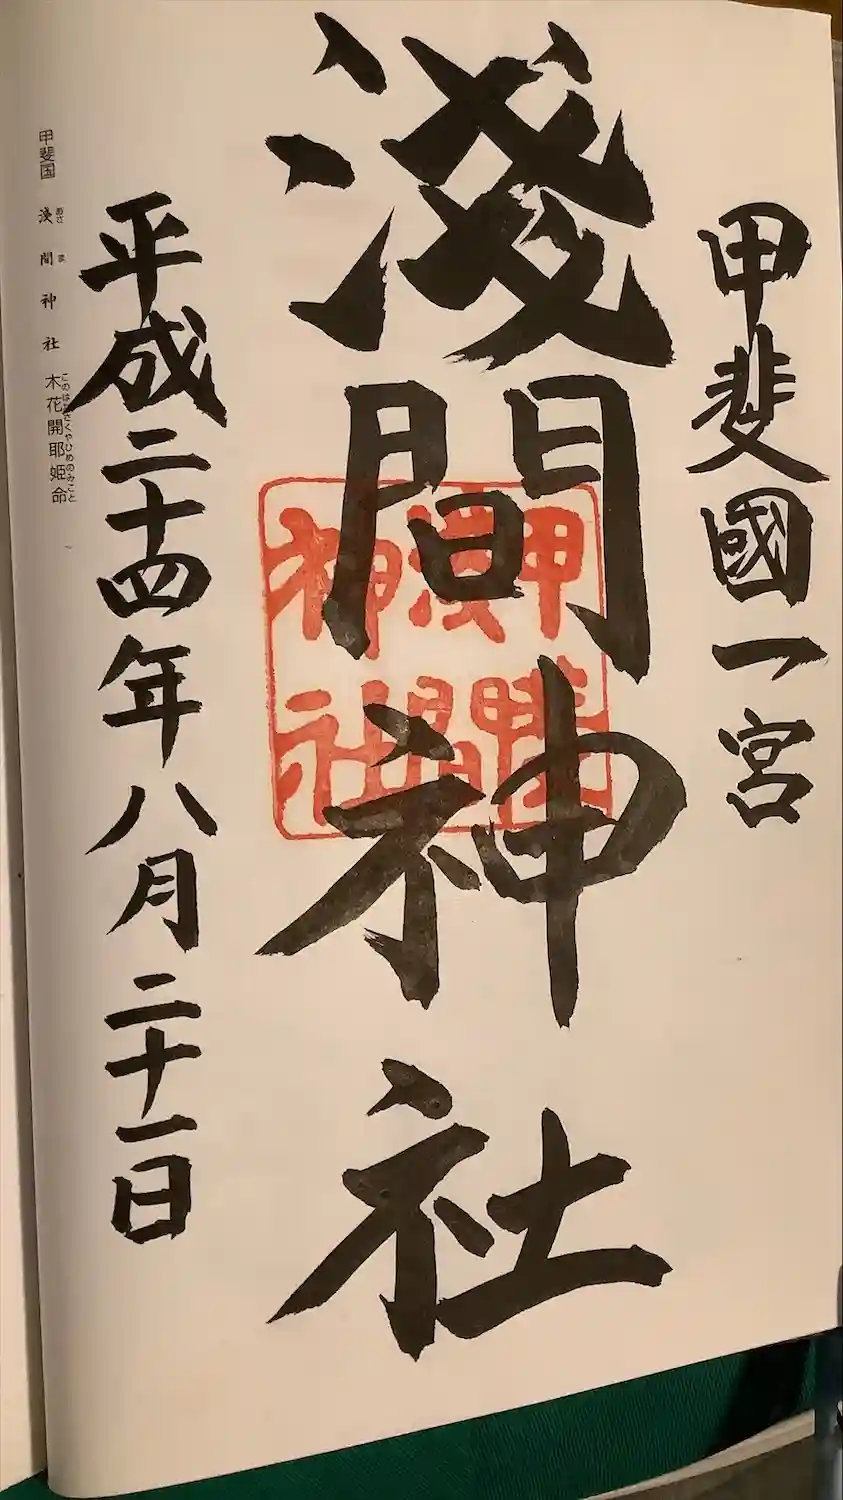 甲斐國一宮
淺間神社
甲斐
淺間
神社
平成二十四年八月二十一日
甲斐国 淺間神社 木花開耶姫命
あさま
このはなさくやひめのみこと